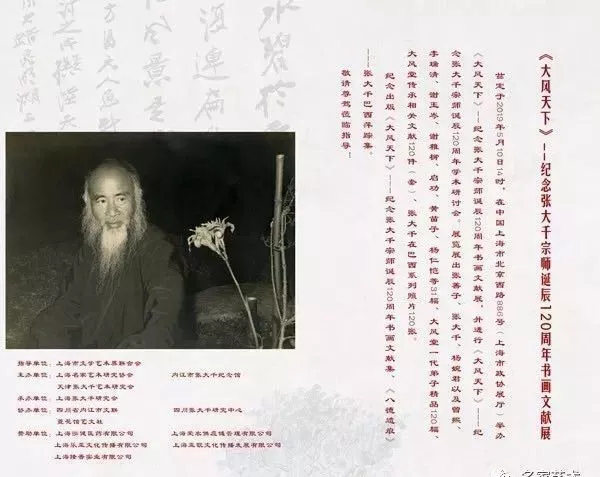 《大风天下》--纪念张大千宗师诞辰120周年书画文献展
兹定于2019年5月10日14时，在中国上海市北京西路886号（上海市政协展厅）举办
《大风天下》--纪念张大千宗师诞辰120周年书画文献展，并进行《大风天下》--纪
念张大千宗师诞辰120周年学术研讨会。展览展出张善子、张大千、杨婉君以及曾熙、
李瑞清、谢玉岑、谢稚柳、启功、黄苗子、杨仁恺等31幅、大风堂一代弟子精品120幅、
大风堂传承相关文献120件（套）、张大千在巴西系列照片120张。
纪念出版《大风天下》---纪念张大千宗师诞辰120周年书画文献集、《八德遗痕》
---张大千巴西萍踪集。
敬请尊驾莅临指导…
指导单位：上海市文学艺术界联合会
主办单位：上海名家艺术研究协会 内江市张大千纪念馆
天津张大千艺术研究会
承办单位：上海张大千研究会
协办单位：四川省内江市文联 四川张大千研究中心
昙花馆艺文社
赞助单位：
上海乐巫文化传播有限公司
上海隆香实业有限公司